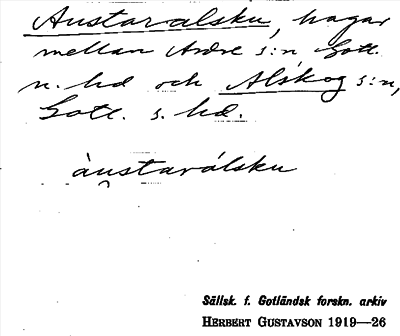 Austaralsku, hagar
mellan Ardre s:n Gotl.
n. hd och Alskog s:n,
Gotl. s. hd.
àustarálsku
Sällsk. f. Gotländsk forskn. arkiv
HERBERT GUSTAVSON 1919—26